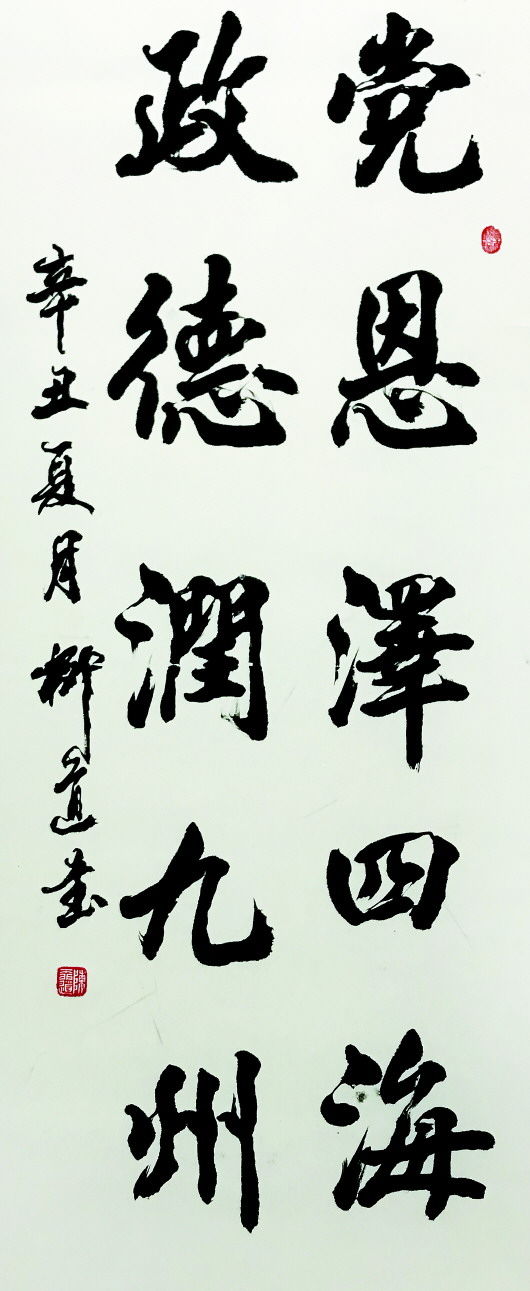 党恩澤四海
政德潤九州
辛丑夏月柳道堂